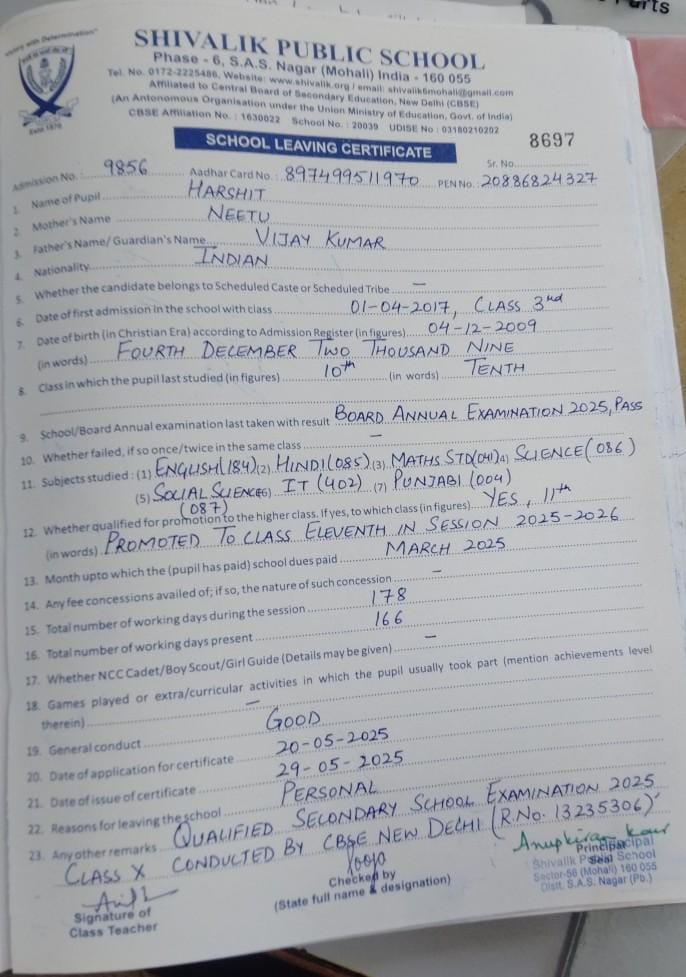 SHIVALIK PUBLIC SCHOOL
Phase - 6, S.A.S. Nagar (Mohali) India - 160 055
Tel. No. 0172-2225486, Website: www.shivalik.org / email: shivalik6mohali@gmail.com
Affiliated to Central Board of Secondary Education, New Delhi (CBSE)
(An Antonomous Organisation under the Union Ministry of Education, Govt. of India)
CBSE Affiliation No. : 1630022 School No. : 20039 UDISE No : 03180210202
SCHOOL LEAVING CERTIFICATE
8697
Sr. No.
Admission No. 9856 Aadhar Card No.: 897499511970 PEN No.: 20886824327
1. Name of Pupil HARSHIT
2. Mother's Name NEETU
3. Father's Name/ Guardian's Name VIJAY KUMAR
4. Nationality INDIAN
5. Whether the candidate belongs to Scheduled Caste or Scheduled Tribe —
6. Date of first admission in the school with class 01-04-2017, CLASS 3rd
7. Date of birth (in Christian Era) according to Admission Register (in figures) 04-12-2009
(in words) FOURTH DECEMBER TWO THOUSAND NINE
8. Class in which the pupil last studied (in figures) 10th (in words) TENTH
9. School/Board Annual examination last taken with result BOARD ANNUAL EXAMINATION 2025, PASS
10. Whether failed, if so once/twice in the same class —
11. Subjects studied : (1) ENGLISH(184) (2) HINDI(085) (3) MATHS STD(041) (4) SCIENCE(086)
(5) SOCIAL SCIENCE (6) IT (402) (7) PUNJABI (004)
(087)
12. Whether qualified for promotion to the higher class. If yes, to which class (in figures) YES, 11th
(in words) PROMOTED TO CLASS ELEVENTH IN SESSION 2025-2026
13. Month upto which the (pupil has paid) school dues paid MARCH 2025
14. Any fee concessions availed of; if so, the nature of such concession —
15. Total number of working days during the session 178
16. Total number of working days present 166
17. Whether NCC Cadet/Boy Scout/Girl Guide (Details may be given) —
18. Games played or extra/curricular activities in which the pupil usually took part (mention achievements level
therein) —
19. General conduct GOOD
20. Date of application for certificate 20-05-2025
21. Date of issue of certificate 29-05-2025
22. Reasons for leaving the school PERSONAL
23. Any other remarks QUALIFIED SECONDARY SCHOOL EXAMINATION 2025
CLASS X CONDUCTED BY CBSE NEW DELHI (R.No. 13235306)
Signature of
Class Teacher
Checked by
(State full name & designation)
Anupkiran Kaur
Principal
Shivalik Public School
Sector-56 (Mohali) 160 055
Distt. S.A.S. Nagar (Pb.)